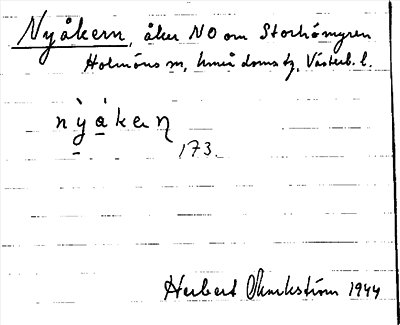 Nyåkern, åker NO om Storhömyren
Holmöns sn, Umeå domstg, Västerb. l.
nỳ̠à̠keɳ
173.
Herbert Markström 1944